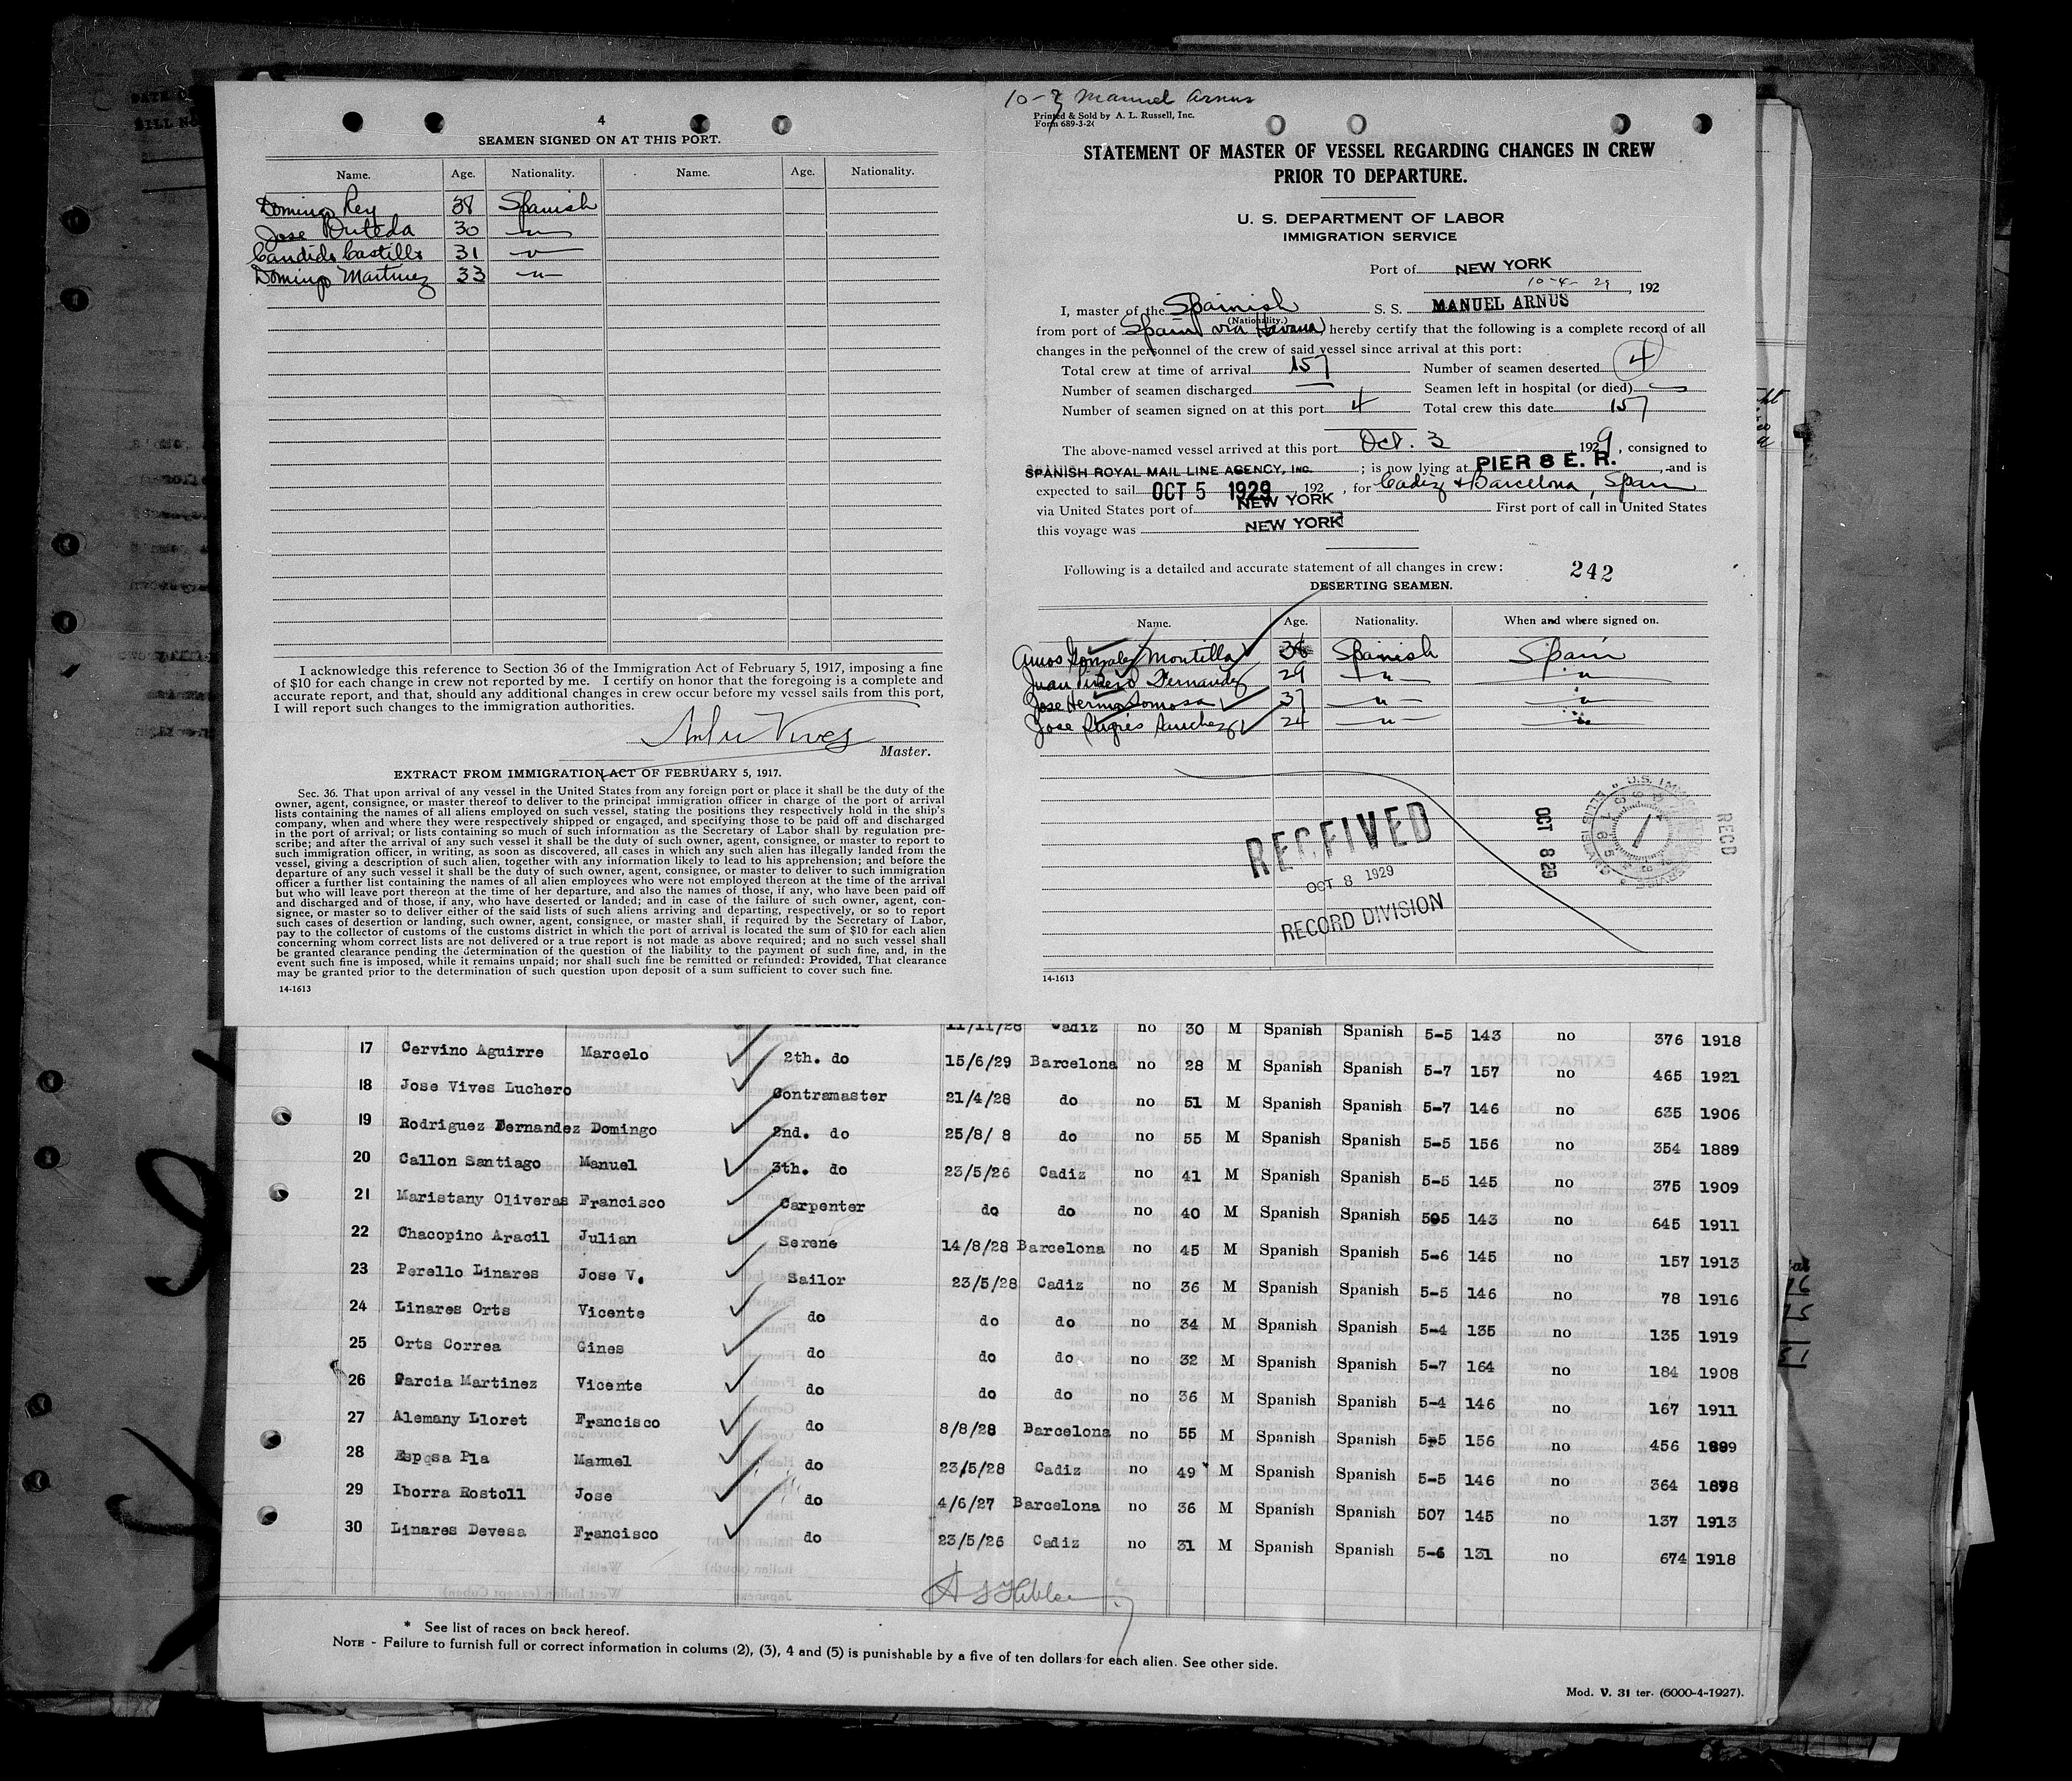 4
SEAMEN SIGNED ON AT THIS PORT.
Name. Age. Nationality. Name. Age. Nationality.
Domingo Rey 38 Spanish
Jose 30 -"-
Candido Castillo 31 -"-
Domingo Martinez 33 -"-
I acknowledge this reference to Section 36 of the Immigration Act of February 5, 1917, imposing a fine
of $10 for each change in crew not reported by me. I certify on honor that the foregoing is a complete and
accurate report, and that, should any additional changes in crew occur before my vessel sails from this port,
I will report such changes to the immigration authorities.
Vives
Master.
EXTRACT FROM IMMIGRATION ACT OF FEBRUARY 5, 1917.
Sec. 36. That upon arrival of any vessel in the United States from any foreign port or place it shall be the duty of the
owner, agent, consignee, or master thereof to deliver to the principal immigration officer in charge of the port of arrival
lists containing the names of all aliens employed on such vessel, stating the positions they respectively hold in the ship's
company, when and where they were respectively shipped or engaged, and specifying those to be paid off and discharged
in the port of arrival; or lists containing so much of such information as the Secretary of Labor shall by regulation pre-
scribe; and after the arrival of any such vessel it shall be the duty of such owner, agent, consignee, or master to report to
such immigration officer, in writing, as soon as discovered, all cases in which any such alien has illegally landed from the
vessel, giving a description of such alien, together with any information likely to lead to his apprehension; and before the
departure of any such vessel it shall be the duty of such owner, agent, consignee, or master to deliver to such immigration
officer a further list containing the names of all alien employees who were not employed thereon at the time of the arrival
but who will leave port thereon at the time of her departure, and also the names of those, if any, who have been paid off
and discharged and of those, if any, who have deserted or landed; and in case of the failure of such owner, agent, con-
signee, or master so to deliver either of the said lists of such aliens arriving and departing, respectively, or so to report
such cases of desertion or landing, such owner, agent, consignee, or master shall, if required by the Secretary of Labor,
pay to the collector of customs of the customs district in which the port of arrival is located the sum of $10 for each alien
concerning whom correct lists are not delivered or a true report is not made as above required; and no such vessel shall
be granted clearance pending the determination of the question of the liability to the payment of such fine, and, in the
event such fine is imposed, while it remains unpaid; nor shall such fine be remitted or refunded: Provided, That clearance
may be granted prior to the determination of such question upon deposit of a sum sufficient to cover such fine.
14-1613
10-7 Manuel Arnus
Printed & Sold by A. L. Russell, Inc.
Form 689-3-26
STATEMENT OF MASTER OF VESSEL REGARDING CHANGES IN CREW
PRIOR TO DEPARTURE.
U. S. DEPARTMENT OF LABOR
IMMIGRATION SERVICE
Port of NEW YORK
10-4-29, 192
I, master of the Spanish S. S. MANUEL ARNUS
(Nationality.)
from port of Spain via Havana hereby certify that the following is a complete record of all
changes in the personnel of the crew of said vessel since arrival at this port:
Total crew at time of arrival 157 Number of seamen deserted 4
Number of seamen discharged — Seamen left in hospital (or died) —
Number of seamen signed on at this port 4 Total crew this date 157
The above-named vessel arrived at this port Oct. 3 1929, consigned to
SPANISH ROYAL MAIL LINE AGENCY, INC. ; is now lying at PIER 8 E. R. , and is
expected to sail OCT 5 1929 192 , for Cadiz & Barcelona, Spain
via United States port of NEW YORK First port of call in United States
this voyage was NEW YORK
Following is a detailed and accurate statement of all changes in crew: 242
DESERTING SEAMEN.
Name. Age. Nationality. When and where signed on.
Amos Gonzalez Montilla 36 Spanish Spain
Juan Fernandez 29 -"- -"-
Jose 37 -"- -"-
Jose Sanchez 24 -"- -"-
RECEIVED
OCT 8 1929
RECORD DIVISION
OCT 8 29
RECD
14-1613
11/11/28 Cadiz no 30 M Spanish Spanish 5-5 143 no 376 1918
17 Cervino Aguirre Marcelo 2th. do 15/6/29 Barcelona no 28 M Spanish Spanish 5-7 157 no 465 1921
18 Jose Vives Luchero Contramaster 21/4/28 do no 51 M Spanish Spanish 5-7 146 no 635 1906
19 Rodriguez Fernandez Domingo 2nd. do 25/8/ 8 do no 55 M Spanish Spanish 5-5 156 no 354 1889
20 Callon Santiago Manuel 3th. do 23/5/26 Cadiz no 41 M Spanish Spanish 5-5 145 no 375 1909
21 Maristany Oliveras Francisco Carpenter do do no 40 M Spanish Spanish 505 143 no 645 1911
22 Chacopino Aracil Julian Serene 14/8/28 Barcelona no 45 M Spanish Spanish 5-6 145 no 157 1913
23 Perello Linares Jose V. Sailor 23/5/28 Cadiz no 36 M Spanish Spanish 5-5 146 no 78 1916
24 Linares Orts Vicente do do do no 34 M Spanish Spanish 5-4 135 no 135 1919
25 Orts Correa Gines do do do no 32 M Spanish Spanish 5-7 164 no 184 1908
26 Garcia Martinez Vicente do do do no 36 M Spanish Spanish 5-4 146 no 167 1911
27 Alemany Lloret Francisco do 8/8/28 Barcelona no 55 M Spanish Spanish 5-5 156 no 456 1899
28 Esposa Pla Manuel do 23/5/28 Cadiz no 49 M Spanish Spanish 5-5 146 no 364 1898
29 Iborra Rostoll Jose do 4/6/27 Barcelona no 36 M Spanish Spanish 507 145 no 137 1913
30 Linares Devesa Francisco do 23/5/26 Cadiz no 31 M Spanish Spanish 5-6 131 no 674 1918
* See list of races on back hereof.
NOTE - Failure to furnish full or correct information in colums (2), (3), 4 and (5) is punishable by a five of ten dollars for each alien. See other side.
Mod. V. 31 ter. (6000-4-1927).